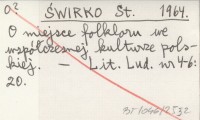 ŚWIRKO St. 1964.
O miejsce folkloru we
współczesnej kulturze pols-
kiej. — Lit. Lud. nr 4-6:
20.